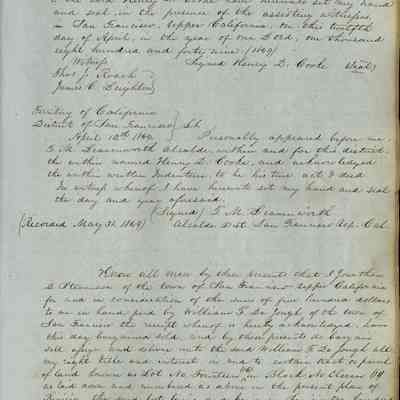 the said Henry D. Cooke have hereunto set my hand
and seal in the presence of the assisting witnesses,
in San Francisco, Upper California, on this twelfth
day of April, in the year of our Lord, one thousand
eight hundred and forty nine (1849)
Witness Signed Henry D. Cooke (Seal)
Thos J. Roach
James C. Leighton
Territory of California
District of San Francisco } S.h.
April 12th 1849. Personally appeared before me
T. M. Leavenworth Alcalde within and for this district
the within named Henry D. Cooke, and acknowledged
the within written Indenture to be his true act & deed
In witness whereof I have hereunto set my hand and seal
the day and year aforesaid.
(Signed) T. M. Leavenworth
(Recorded May 31, 1849) Alcalde Dist. San Francisco Upp. Cal.
Know all men by these presents that I Jonathan
D. Stevenson of the town of San Francisco Upper California
for and in consideration of the sum of five hundred dollars
to me in hand paid by William F. De Jough of the town of
San Francisco the receipt whereof is hereby acknowledged, have
this day bargained sold, and by these presents do bargain
sell assign and deliver unto the said William F. De Jough all
my right title and interest in and to certain tract or parcel
of land known as Lot No Fourteen in Block No Eleven
as laid down and numbered as above in the present plan of